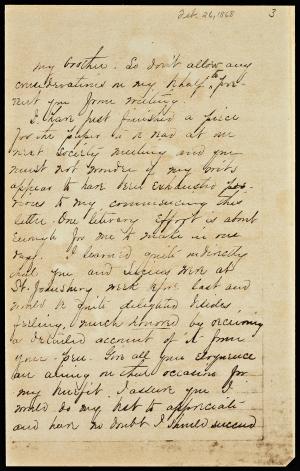 Feb. 26, 1868 3
my brother. So don't allow any
considerations on my behalf to pre-
vent you from writing.
I have just finished a piece
for the paper to be read at our
next society meeting and you
must not wonder if my wits
appear to have been exhausted pre-
vious to my commencing this
letter. One literary effort is about
enough for me to make in one
day. I learned quite indirectly
that you and were at
St. Johnsbury week before last and
would be quite delighted besides
feeling much honored by receiving
a detailed account of it from
your pen. Give all your eloquence
an airing on that occasion for
my benefit. I assure you I
would do my best to appreciate
and have no doubt I should succeed